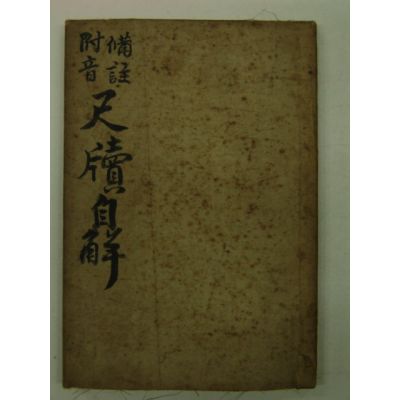 備註
附音
尺牘自解